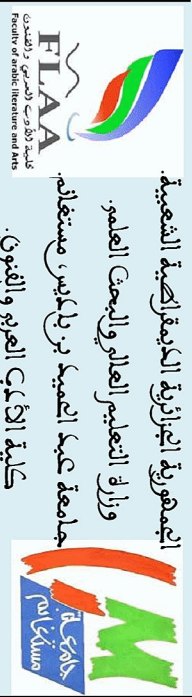 الجمهورية الجزائرية الديمقراطية الشعبية.
وزارة التعليم العالي والبحث العلمي.
جامعة عبد الحميد بن باديس، مستغانم.
كلية الأدب العربي والفنون.
FLAA
كلية الأدب العربي والفنون
Faculty of arabic literature and Arts
جامعة
مستغانم